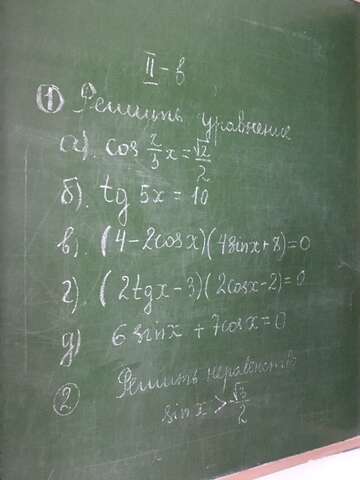 II-в
① Решить уравнения
а). cos 2/3 x = √2/2
б). tg 5x = 10
в). (4-2cosx)(4sinx+8)=0
г). (2tgx-3)(2cosx-2)=0
д) 6sinx + 7cosx=0
② Решить неравенств
sin x > √3/2